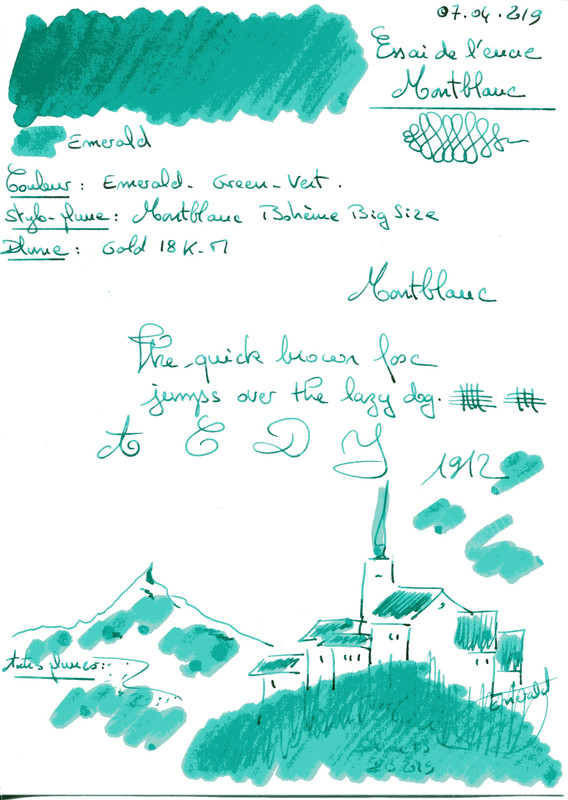 07.04.219
Essai de l'encre
Montblanc
Emerald
Couleur : Emerald - Green - Vert.
Stylo-plume : Montblanc Bohème Big Size
Plume : Gold 18K - M
Montblanc
The quick brown fox
jumps over the lazy dog.
A E D Y
1912
Autres plumes :
Emerald